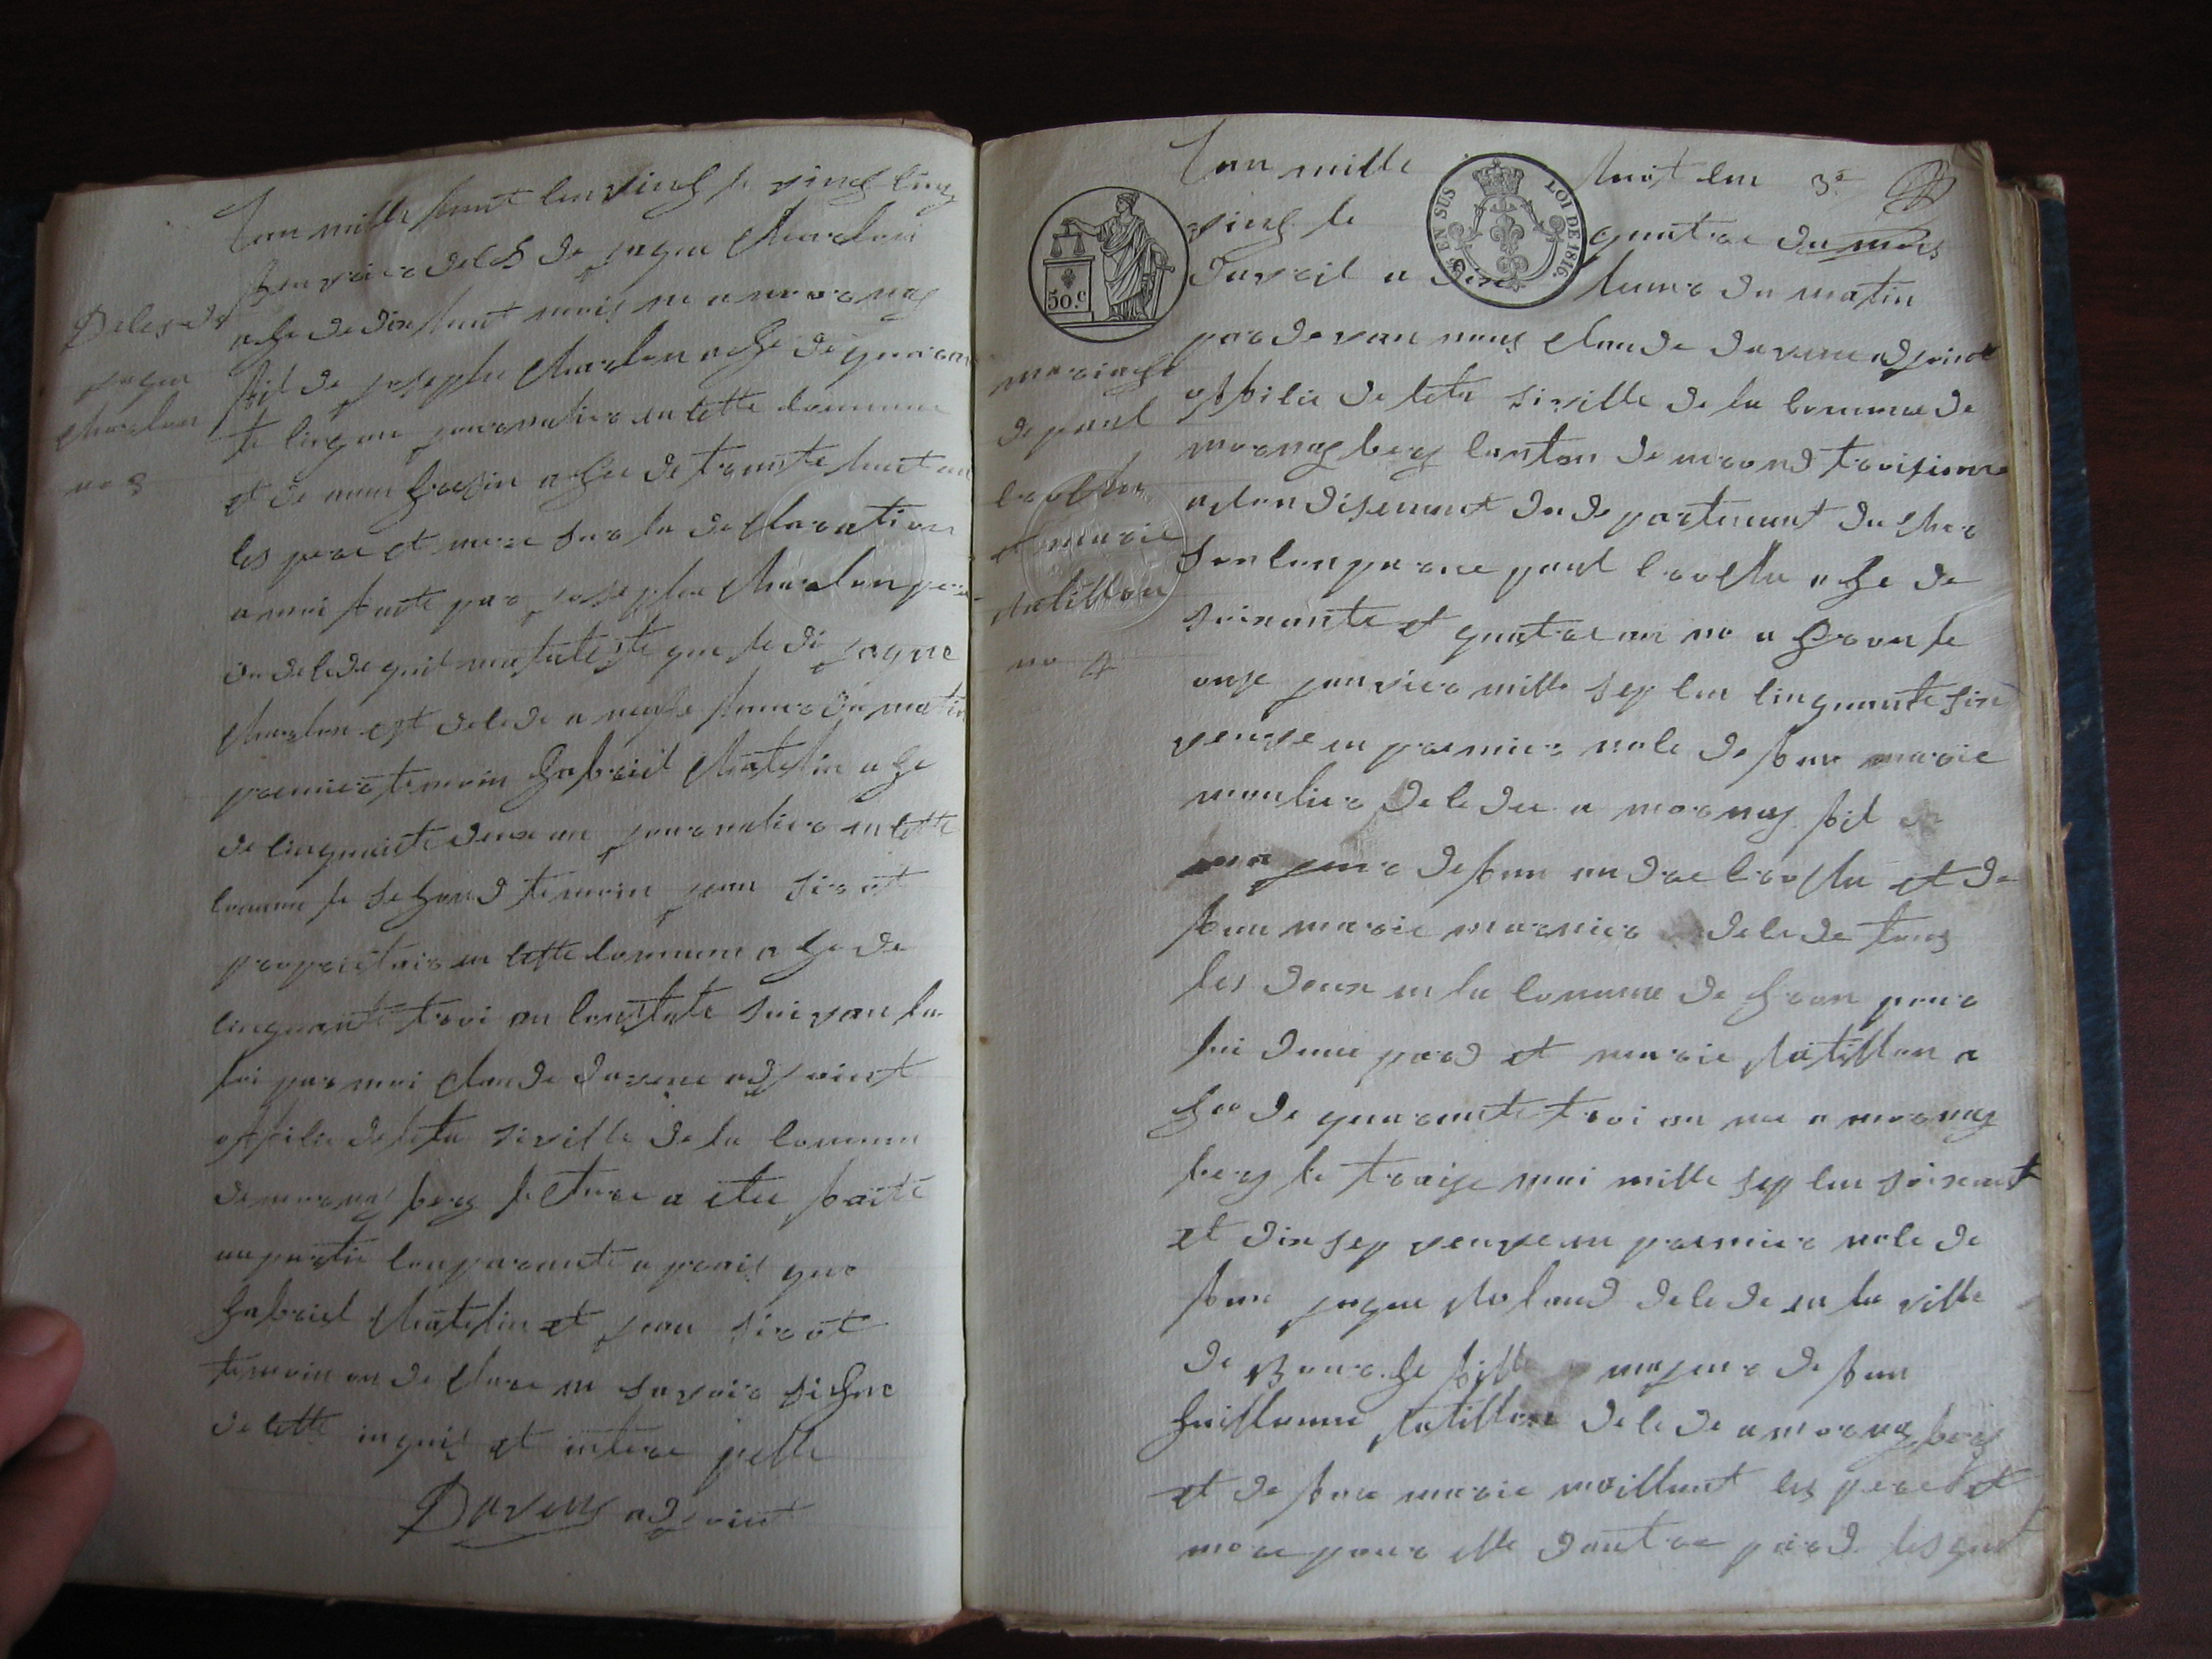 Lan mille huit cen vingt le vingt cinq
janvier deces de jaque Charlon
age de dix huit mois ne a mornay
fil de josephe Charlon age de quaran
te cinq an journalier en cette commune
et de agee de trante huit an
les pere et mere sur la declaration
a moi faite par josephe Charlon pere
du decede qui ma ateste que le di jaque
Charlon est decede a heure du matin
premier temoin gabriel Chatelin age
de cinquante deux an journalier en cette
comun le segond temoin jean sirot
propriettair en cette commun age de
cinquante troi an constate suivan la
loi par moi claude davene adjoint
offisie de leta siville de la commun
de mornay berry lecture a etee faite
au partie comparante apres que
gabriel Chatelin et jean sirot
temoin on declare ne savoir signe
de cette inquis et interepelle
Daveny adjoint
Deces de
jaque
Charlon
no 3
Lan mille huit cen 3e
vingt le quatre du mois
davril a dix heure du matin
par devan nous claude davene adjoint
offisie de leta siville de la commune de
mornay berry canton de nerond troisieme
arondisement du departement du cher
son comparue paul crochu age de
soixante et quatre an ne a gron le
onze janvier mille sep cen cinquante six
veuve en premier nose de feue marie
moulier decedee a mornay fil
majeur de feu andre crochu et de
feue marie marnier decede tous
les deux en la commune de gron pour
lui dune pard et marie chatillon a
gee de quarante troi an nee a mornay
berry le traize mai mille sep cen soixant
et dix sep veuve en premier nose de
feue jaque decede en la ville
de Bourge fille majeur de feu
guillaume chatillon decede a mornay berry
et de feue marie maillant les pere et
mere pour elle dautre pard lesquel
mariage
de paul
crochu
et marie
chatillon
no 4
50.c
EN SUS
LOI DE 1816.